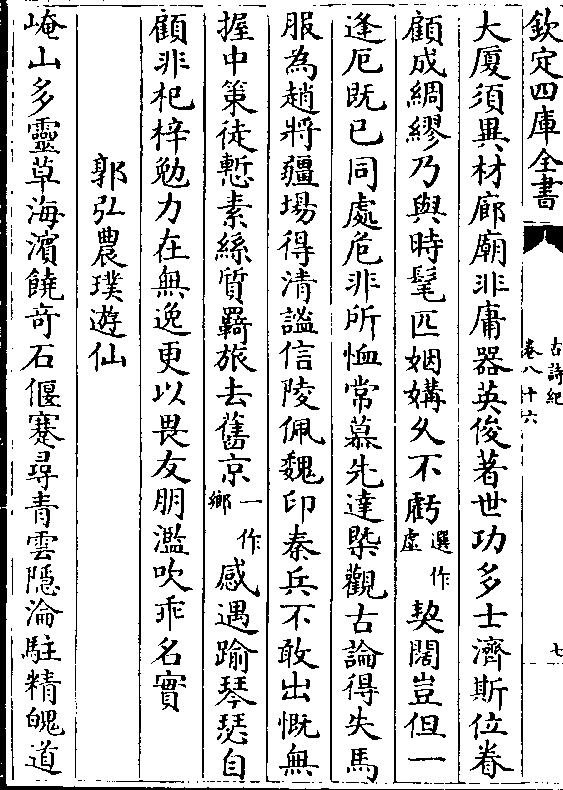 欽定四庫全書
古詩紀
卷八十六
七
大厦須異材廊廟非庸器英俊著世功多士濟斯位眷
顧成綢繆乃與時髦匹姻媾久不虧選作虚契闊豈但一
逢厄既已同處危非所恤常慕先達槩觀古論得失馬
服為趙將疆場得清謐信陵佩魏印秦兵不敢出慨無
握中策徒慙素絲質羇旅去舊京一作鄉感遇踰琴瑟自
顧非杞梓勉力在無逸更以畏友朋濫吹乖名實
郭弘農璞遊仙
崦山多靈草海濱饒奇石偃蹇尋青雲隱淪駐精魄道